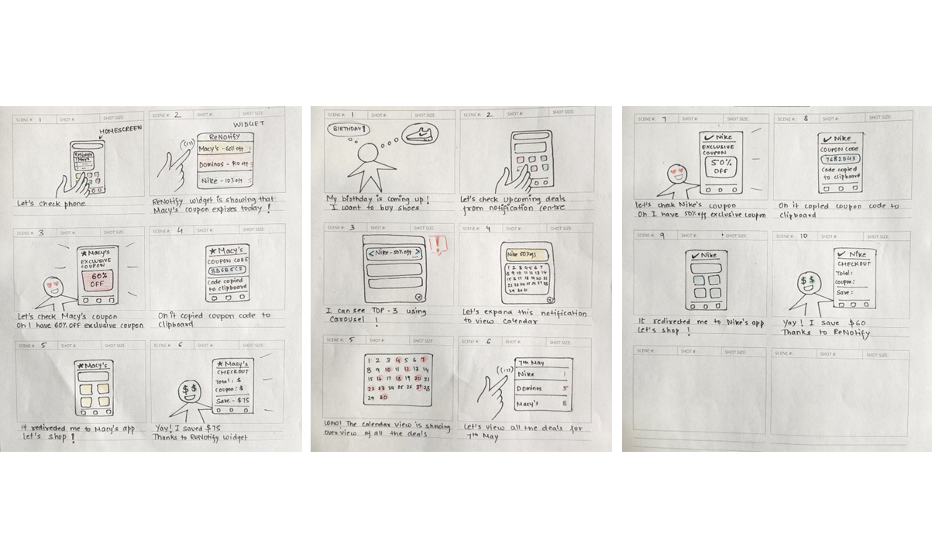 SCENE #: 1 SHOT #: SHOT SIZE:
HOMESCREEN
Let's check phone
SCENE #: 2 SHOT #: SHOT SIZE:
WIDGET
ReNotify
Macy's - 60% off
Dominos - $10 off
Nike - 10% off
ReNotify widget is showing that
Macy's coupon expires today!
SCENE #: 3 SHOT #: SHOT SIZE:
★ Macy's
EXCLUSIVE
COUPON
60%
OFF
Let's check Macy's coupon
Oh I have 60% OFF exclusive coupon
SCENE #: 4 SHOT #: SHOT SIZE:
★ Macy's
COUPON CODE
Code copied
to clipboard
Oh it copied coupon code to
Clipboard
SCENE #: 5 SHOT #: SHOT SIZE:
★ Macy's
It redirected me to Macy's app
Let's shop!
SCENE #: 6 SHOT #: SHOT SIZE:
★ Macy's
CHECKOUT
Total: $
Coupon: $
Save - $75
$ $
Yay! I saved $75
Thanks to ReNotify widget
SCENE #: 1 SHOT #: SHOT SIZE:
BIRTHDAY!
My birthday is coming up!
I want to buy shoes
SCENE #: 2 SHOT #: SHOT SIZE:
Let's check upcoming deals
from notification centre
SCENE #: 3 SHOT #: SHOT SIZE:
< Nike - 50% off >
!
I can see TOP-3 using
Carousel!
SCENE #: 4 SHOT #: SHOT SIZE:
Let's expand this notification
to view calendar
SCENE #: 5 SHOT #: SHOT SIZE:
1 2 3 4 5 6 7
8 9 10 11 12 13 14
15 16 17 18 19 20 21
22 23 24 25 26 27 28
29 30
The calendar view is showing
overview of all the deals
SCENE #: 6 SHOT #: SHOT SIZE:
7th May
Nike
Dominos
Macy's
Let's view all the deals for
7th May
SCENE #: 7 SHOT #: SHOT SIZE:
Nike
EXCLUSIVE
COUPON
50%
OFF
let's check Nike's coupon
Oh I have 50% off exclusive coupon
SCENE #: 8 SHOT #: SHOT SIZE:
Nike
COUPON CODE
Code copied
to clipboard
Oh it copied coupon code to
clipboard
SCENE #: 9 SHOT #: SHOT SIZE:
Nike
It redirected me to Nike's app
Let's shop!
SCENE #: 10 SHOT #: SHOT SIZE:
Nike
CHECKOUT
Total:
Coupon:
Save:
$ $
Yay! I save $60
Thanks to ReNotify
SCENE #: SHOT #: SHOT SIZE:
SCENE #: SHOT #: SHOT SIZE: